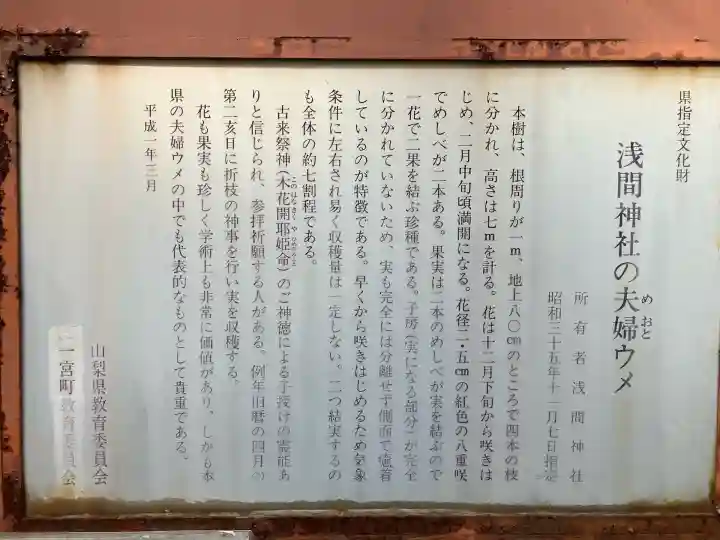 県指定文化財
浅間神社の夫婦ウメ
めおと
所有者 浅間神社
昭和三十五年十一月七日指定
本樹は、根周りが一m、地上八〇cmのところで四本の枝
に分かれ、高さは七mを計る。花は十二月下旬から咲きは
じめ、二月中旬頃満開になる。花径二・五cmの紅色の八重咲
でめしべが二本ある。果実は二本のめしべが実を結ぶので
一花で二果を結ぶ珍種である。子房(実になる部分)が完全
に分かれていないため、実も完全には分離せず側面で癒着
しているのが特徴である。早くから咲きはじめるため気象
条件に左右され易く収穫量は一定しない。二つ結実するの
も全体の約七割程である。
古来祭神(木花開耶姫命)のご神徳による子授けの霊能あ
このはなさくやひめのみこと
りと信じられ、参拝祈願する人がある。例年旧暦の四月の
第二亥日に折枝の神事を行い実を収穫する。
花も果実も珍しく学術上も非常に価値があり、しかも本
県の夫婦ウメの中でも代表的なものとして貴重である。
平成一年三月
山梨県教育委員会
一宮町教育委員会